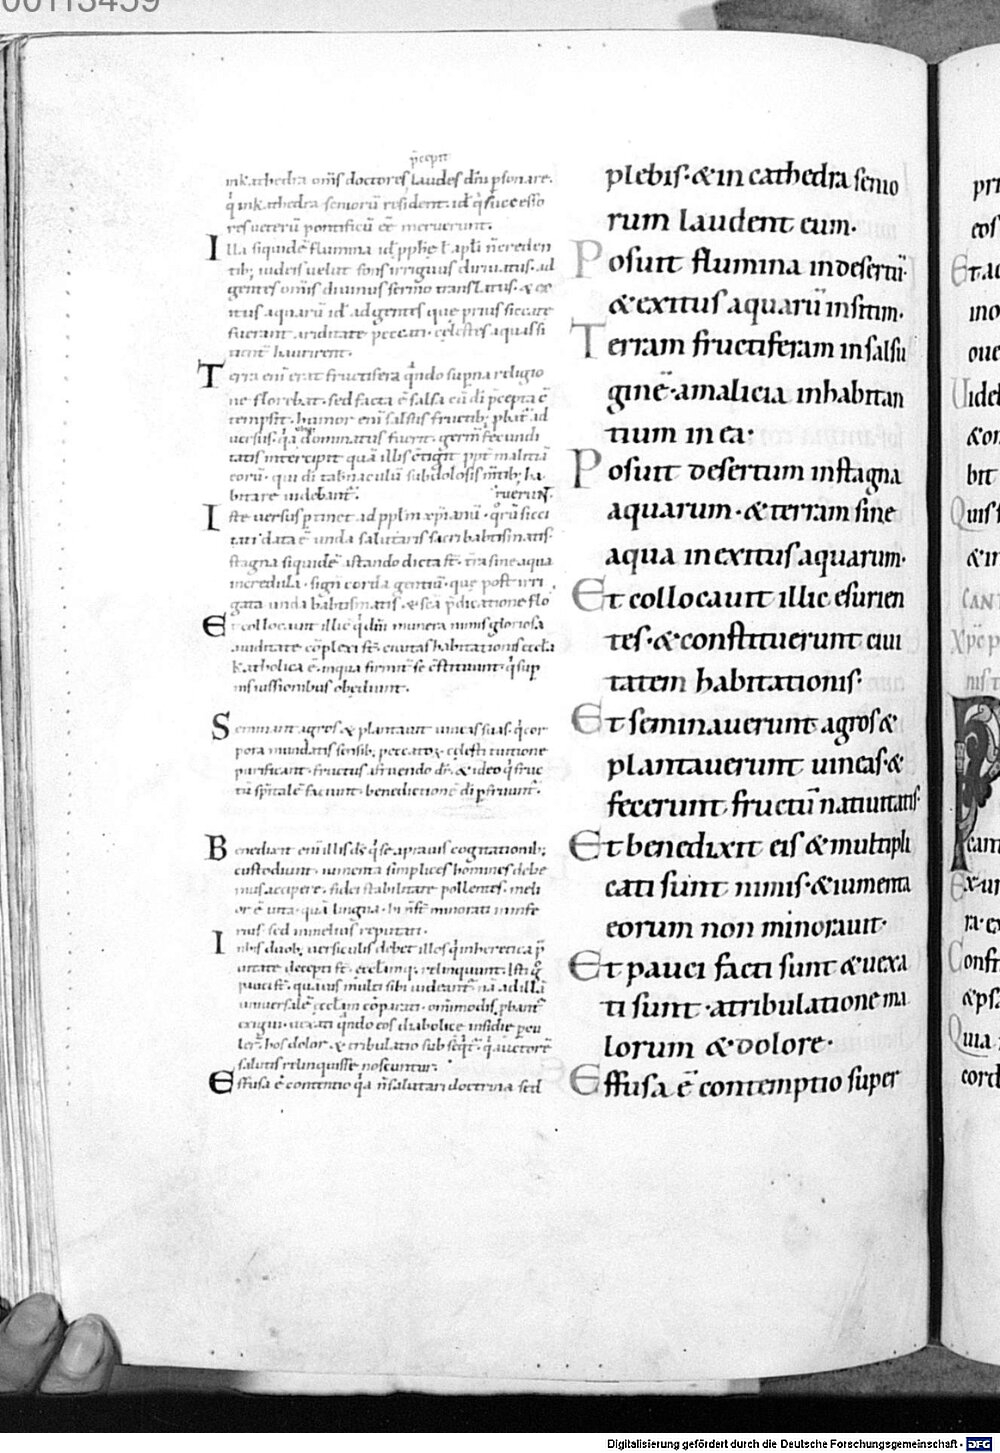 00113459
p̄cepit
ink athedra om̄s doctores laudes dn̄i p̱sonare.
q̄ ink athedra senioru᷑ resident. id ÷ q̄ successo
res veteru᷑ pontificu᷑ eē meruerunt.
Illa siquide᷑ flumina
tib; iudeis uelut fons irriguus diriuatus. ad
gentes om̄s diuinus sermo translatus. & ex
itus aquaru᷑ id ÷ ad gentes que prius siccate
fuerant ariditate peccati. cęlestes aquas si
tient haurirent.
Terra eni᷑ erat fructifera q̄ndo sup̱na religio
ne florebat. sed facta ē salsa cu᷑ di p̄cepta c̄
tempsit. humor eni᷑ salsus fructib; p̱bat᷑ ad
uersus. q̄a dominatus fuerit. germ̄ fecundi
tatis intercipit
eoru᷑. qui di tab̄naculu᷑ subdolosis m̄tib; ha
bitare uideban᷑t.
ruerun᷑t
Iste versus p̱tinet ad pp̄lm xp̄ianu᷑. q̄ru᷑ sicci
tati data ē unda salutaris sacri babtismatis.
stagna siquide᷑ a stando dicta s᷑t. t̄ra sine aqua
incredula. sign̄ corda gentiu᷑. que post irri
gata unda babtismatis. & sc̄a p̄dicatione flo
Et collocauit illic q̄ dn̄i munera nimis gloriosa
auiditate co᷑plexi s᷑t. ciuitas habitationis eccl̄a
katholica ē. in qua firmit᷑ se c̄stituunt. q̄ sup̱
nis iussionibus obediunt.
Seminant agros. & plantant uineas suas. q̄ cor
pora mundatis sensib; peccatoꝝ cęlesti
purificant. fructus a fruendo dr̄. & ideo q̄ fruc
tu᷑ sp̄itale᷑ faciunt. benedictione᷑ di p̱ fruunt᷑.
Benedixit eni᷑ illis ds̄ q̄ se a prauis cogitationib;
custodiunt. iumenta simplices homines debe
mus accipere. fidei stabilitate pollentes. meli
or ē uita. qua᷑ lingua. hi n̄ s᷑t minorati
sed in melius reputati.
In his duob; uersiculis debet illos q̄ in heretica p̱
uitate decepti s᷑t
pauci s᷑t. quamuis multi sibi uideant᷑. na᷑ ad illa᷑
uniuersale᷑ eccl̄am co᷑parati. om̄imodis p̱bant᷑
exigui. uexati q̄ndo eos diabolice insidie p̱cu
ler᷑. hos dolor. & tribulatio sub seq̄t᷑. q̄ auctore᷑
salutis relinquisse noscuntur.
Effusa ē contentio q̄a n̄ salutari doctrina sed
plebis. & in cathedra senio
rum laudent eum.
Posuit flumina in desertu᷑.
& exitus aquaru᷑ in sitim.
Terram fructiferam in salsu
gine᷑. a malicia inhabitan
tium in ea:
Posuit desertum in stagna
aquarum. & terram sine
aqua in exitus aquarum.
Et collocauit illic esurien
tes. & constituerunt ciui
tatem habitationis.
Et seminauerunt agros &
plantauerunt uineas. &
fecerunt fructu᷑ natiuitatis.
Et benedixit eis & multipli
cati sunt nimis. & iumenta
eorum non minorauit.
Et pauci facti sunt & uexa
ti sunt. a tribulatione ma
lorum & dolore.
Effusa ē contemptio super
pri
eos
Et ad
ino
oue
Uide
& om
bit
Quis s
& in
CANT
Xp̄c p
nis t
P
cam
Ex ur
ra. ex
Confit
& psa
Quia
cord
Digitalisierung gefördert durch die Deutsche Forschungsgemeinschaft - DFG